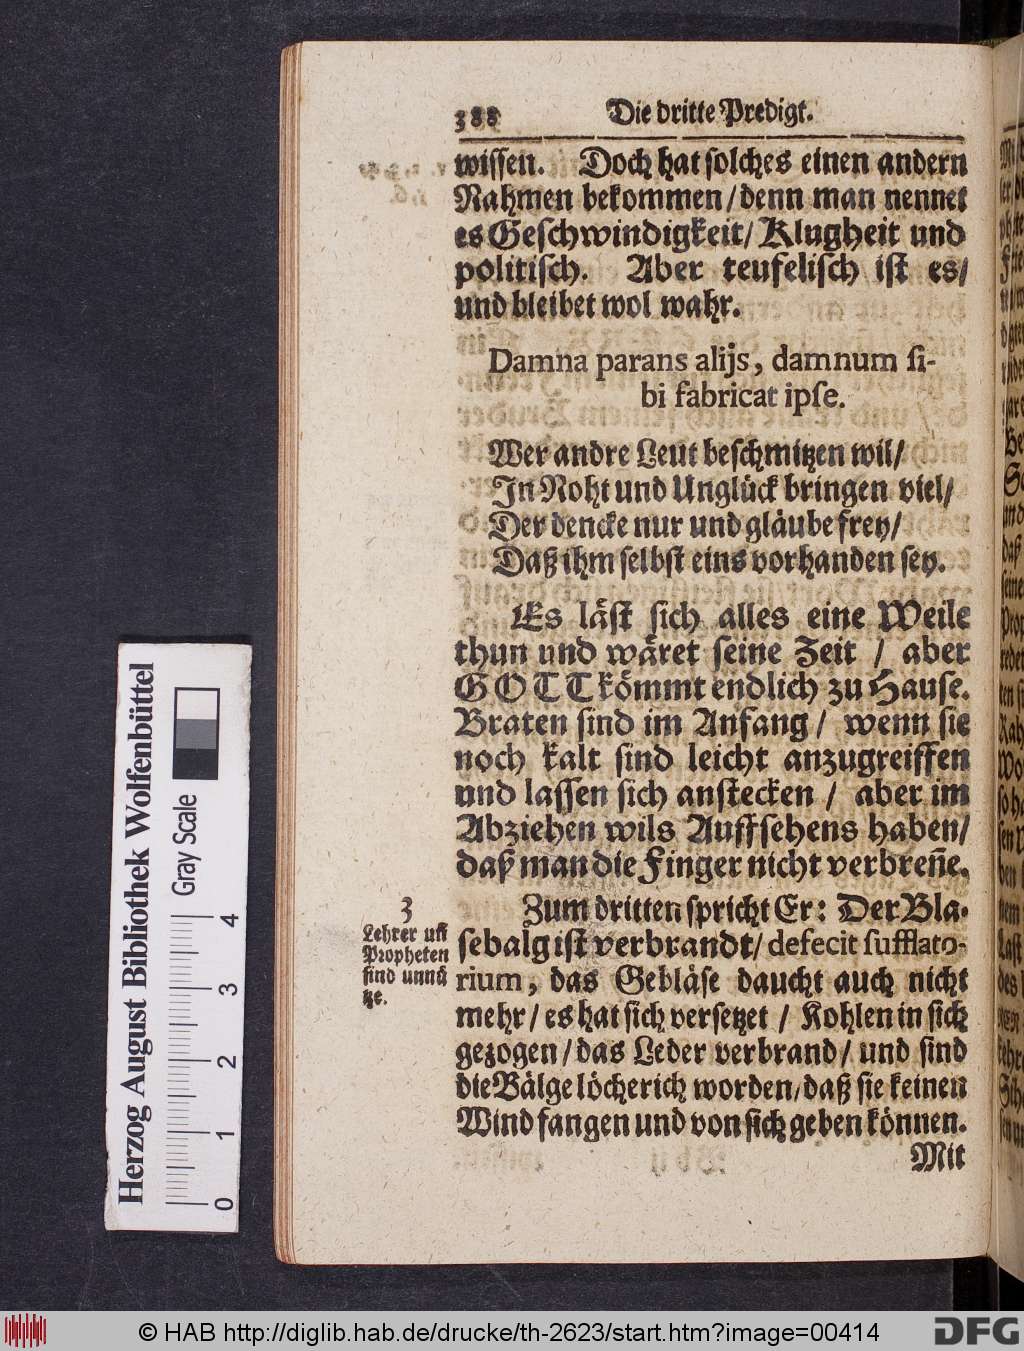 388
Die dritte Predigt.
wissen. Doch hat solches einen andern
Nahmen bekommen/denn man nennet
es Geschwindigkeit/ Klugheit und
politisch. Aber teufelisch ist es/
und bleibet wol wahr.
Damna parans alijs, damnum ſi-
bi fabricat ipſe.
Wer andre Leut beschmitzen wil/
In Noht und Unglück bringen viel/
Der dencke nur und gläube frey/
Daß ihm selbst eins vorhanden sey.
Es läst sich alles eine Weile
thun und wäret seine Zeit / aber
GOTT kömmt endlich zu Hause.
Braten sind im Anfang/ wenn sie
noch kalt sind leicht anzugreiffen
und lassen sich anstecken / aber im
Abziehen wils Auffsehens haben/
daß man die Finger nicht verbreñe.
3
Lehrer uñ
Propheten
sind unnü
tze.
Zum dritten spricht Er: Der Bla-
sebalg ist verbrandt/ defecit ſufflato-
rium, das Gebläse daucht auch nicht
mehr/ es hat sich versetzet / Kohlen in sich
gezogen/das Leder verbrand/ und sind
die Bälge löcherich worden/daß sie keinen
Wind fangen und von sich geben können.
Mit
Herzog August Bibliothek Wolfenbüttel
Gray Scale
0 1 2 3 4
© HAB http://diglib.hab.de/drucke/th-2623/start.htm?image=00414
DFG